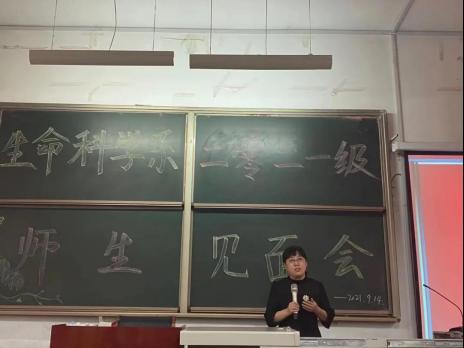 生命科学系 二零二一级
师生 见面会
——2021.9.14